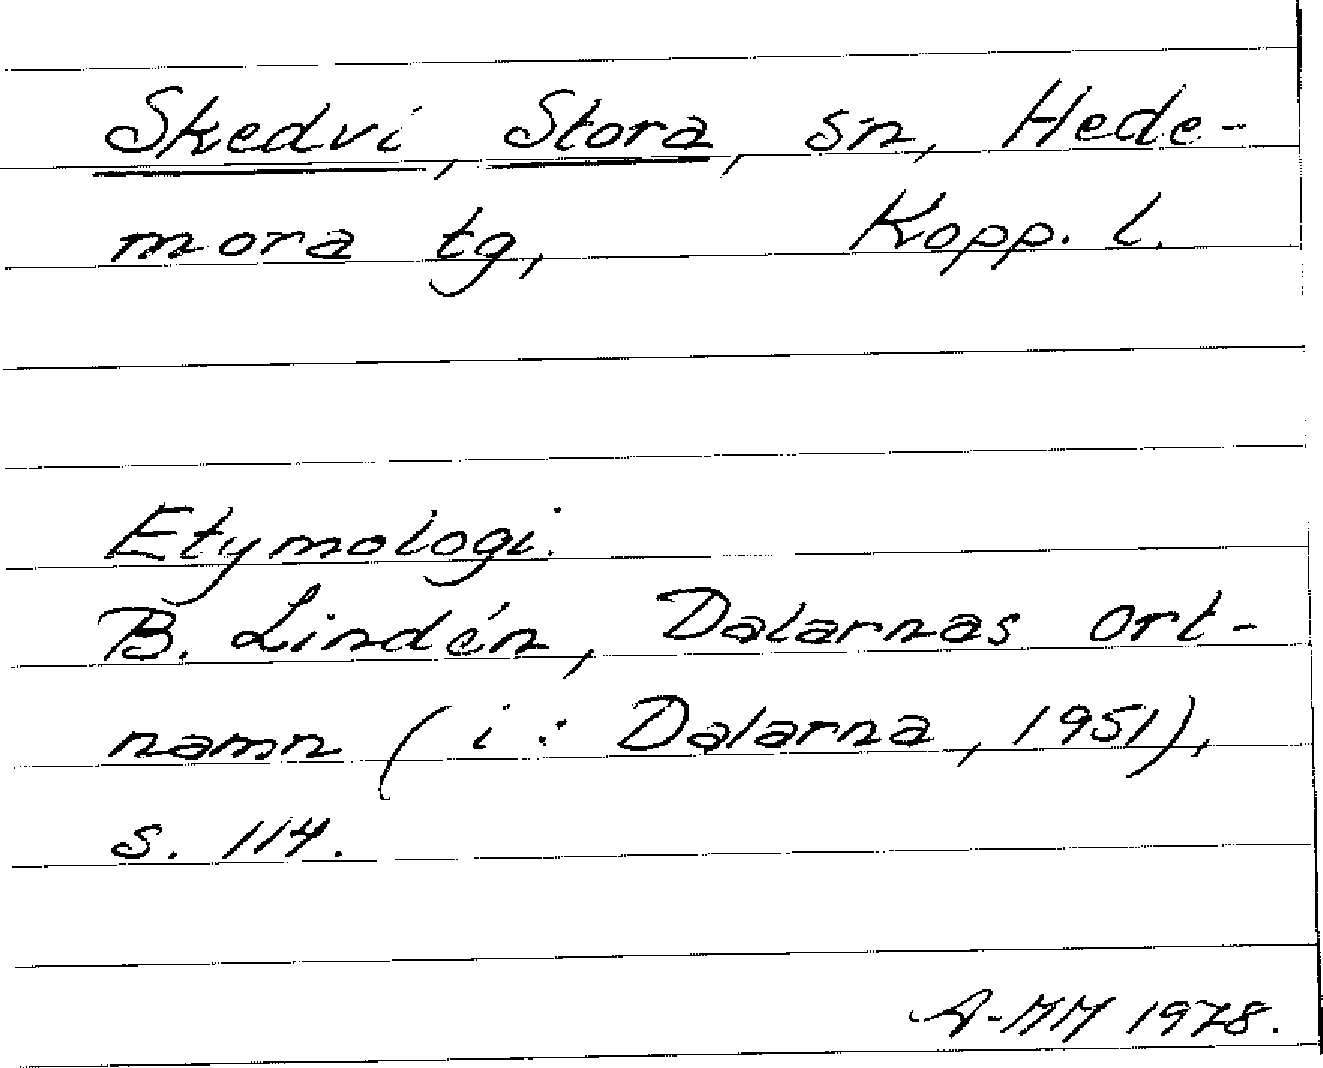 Skedvi, Stora, sn, Hede-
mora tg, Kopp. l.
Etymologi.
B. Lindén, Dalarnas ort-
namn (i: Dalarna, 1951),
s. 114.
A-MM 1978.